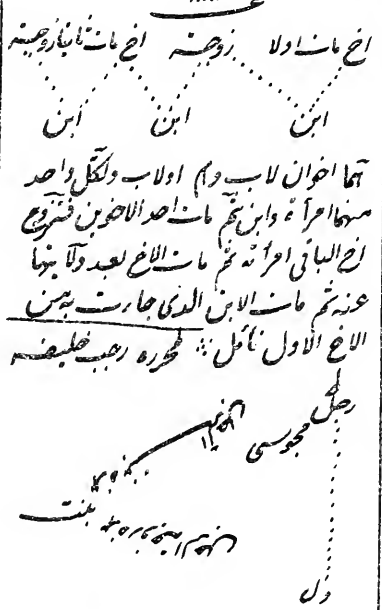 اخ مات اولا زوجته اخ مات ثانيا زوجته
ابن ابن ابن
هما اخوان لاب وام او لاب ولكل واحد
منهما امرأة وابن ثم مات احد الاخوين فتزوج
اخ الباقى امرأته ثم مات الاخ بعد ولادتها
عنه ثم مات الابن الذى جاءت به من
الاخ الاول تأمل لمحرره رجب خليفه
رجل مجوسى
بنت